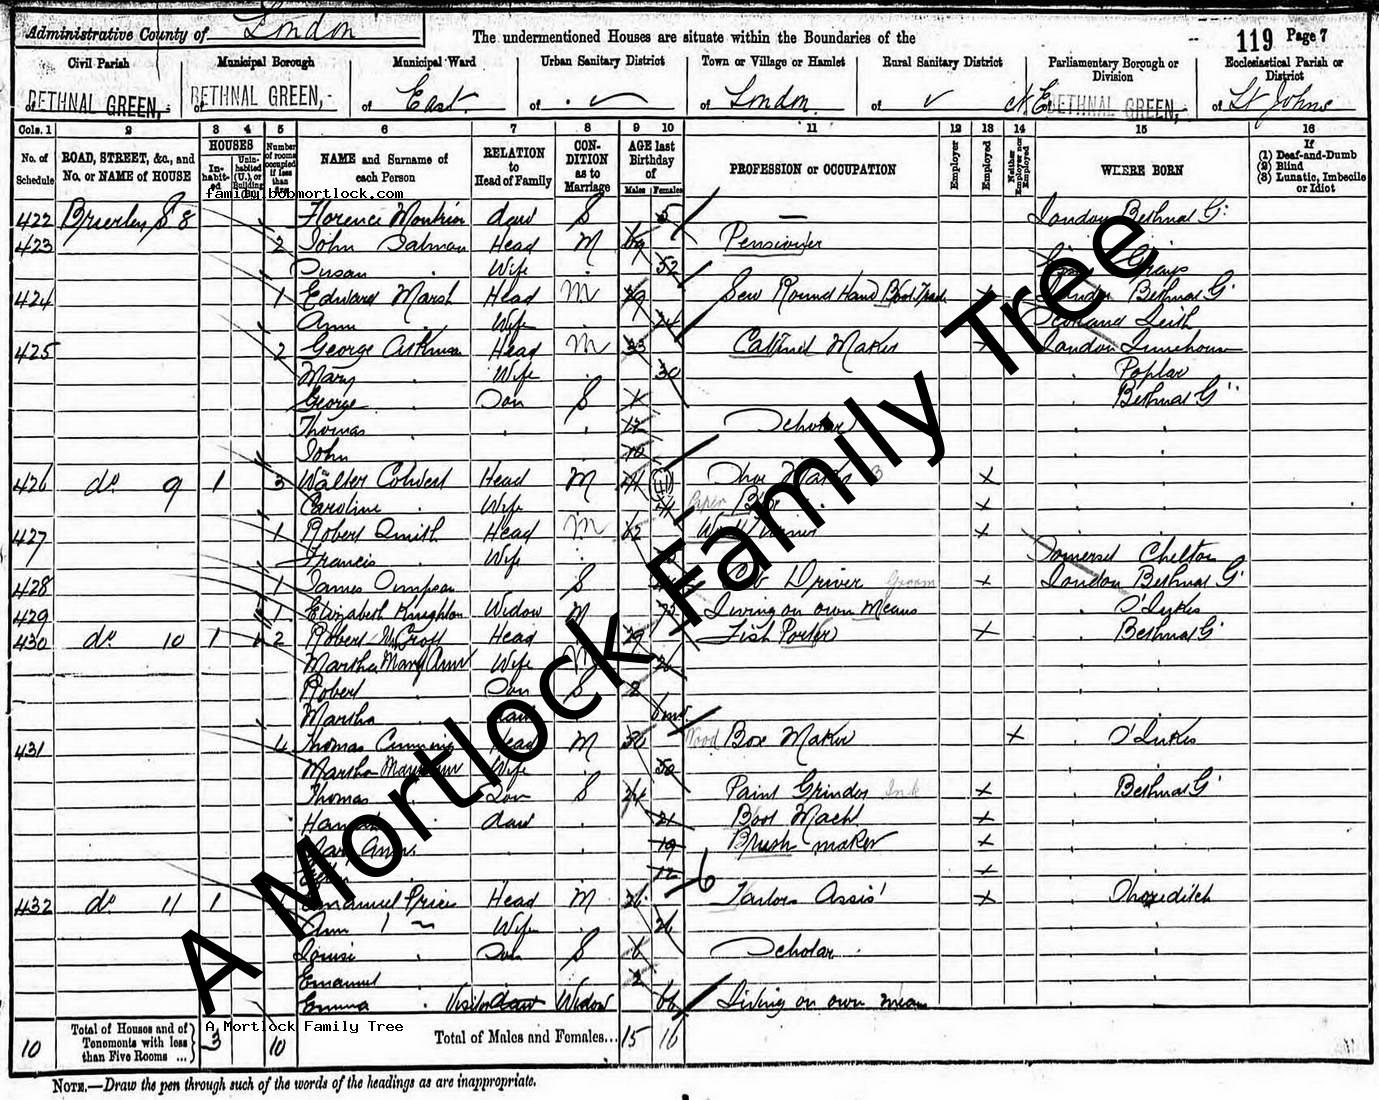 Administrative County of London
The undermentioned Houses are situate within the Boundaries of the
119 Page 7
Civil Parish
Municipal Borough
Municipal Ward
Urban Sanitary District
Town or Village or Hamlet
Rural Sanitary District
Parliamentary Borough or Division
Ecclesiastical Parish or District
of BETHNAL GREEN,
of BETHNAL GREEN,
of East
of
of London
of
of N.E. BETHNAL GREEN,
of St Johns
Cols. 1 2 3 4 5 6 7 8 9 10 11 12 13 14 15 16
No. of Schedule
ROAD, STREET, &c., and No. or NAME of HOUSE
HOUSES
In-habit-ed
Unin-habited (U.), or Building
Number of rooms occupied if less than
NAME and Surname of each Person
RELATION to Head of Family
CON-DITION as to Marriage
AGE last Birthday of
Males Females
PROFESSION or OCCUPATION
Employer
Employed
Neither Employer nor Employed
WHERE BORN
If
(1) Deaf-and-Dumb
(2) Blind
(3) Lunatic, Imbecile or Idiot
family.bobmortlock.com
422 St 8 Florence daur S 5 — London Bethnal G:
423 2 John Salman Head M 69 Pensioner
Susan Wife 52
424 1 Edward Marsh Head M Sew Round Hand Boot Trade x London Bethnal G
Ann Wife Scotland Leith
425 2 George Head M 33 Cabinet Maker x London Limehouse
Mary Wife 30 Poplar
George Son S Bethnal G
Thomas 12 Scholar
John 10
426 do 9 1 3 Walter Head M Maker x
Caroline Wife Paper Box x
427 1 Robert Smith Head M 62 x
Francis Wife Somerset
428 1 James S Driver Groom x London Bethnal G
429 1 Elizabeth Knighton Widow M 73 Living on own Means St Lukes
430 do 10 1 2 Robert Head 29 Fish Porter x Bethnal G
Martha Mary Ann Wife M
Robert Son S 2
Martha daur 6 mo
431 4 Thomas Head M Wood Box Maker x St Lukes
Martha Mary Ann Wife 50
Thomas Son S 24 Paint Grinder Ink x Bethnal G
Hannah daur 21 Boot Mach x
Mary Ann 19 Brush maker x
12 x
432 do 11 1 Emanuel Price Head M 26 Tailors Assist x Shoreditch
Ann Wife 26
Son S 6 Scholar
Emanuel 2
Emma Visitor Widow 66 Living on own means
A Mortlock Family Tree
10
Total of Houses and of Tenements with less than Five Rooms ...
3
10
A Mortlock Family Tree
Total of Males and Females... 15 16
NOTE.—Draw the pen through such of the words of the headings as are inappropriate.